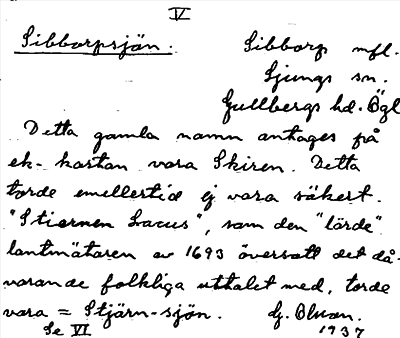 V
Sibborpsjön.
Sibborp mfl.
Ljungs sn.
Gullbergs hd. Ögl
Detta gamla namn antages på
ek-kartan vara Skiren. Detta
torde emellertid ej vara säkert.
"Stiernen Lacus", som den "lärde"
lantmätaren av 1693 översatt det då-
varande folkliga uttalet med, torde
vara = Stjärn-sjön. G. Olson.
Se VI 1937